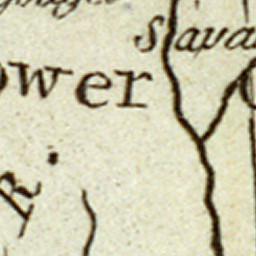 Slava
ower
R.